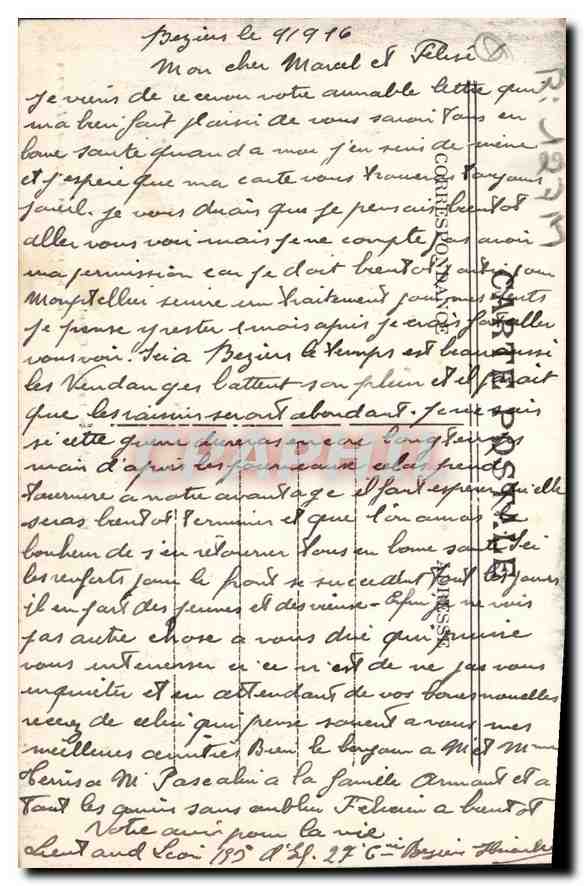 Beziers le 9/9 16
Mon cher Marcel et
Je viens de recevoir votre aimable lettre qui
ma bien fait plaisir de vous savoir tous en
bone santé quand a moi j'en suis de même
et j'espere que ma carte vous trouveras toujours
pareil. Je vous dirais que je pensais bientot
aller vous voir mais je ne compte pas avoir
ma permission car je doit bientot partir pour
Montpellier suivre un traitement pour mes dents
Je pense y rester 1 mois apris je crois pas aller
vous voir. Ici a Beziers le temps est beau aussi
les Vendanges battent son plein et il parait
que les raisins seront abondant. Je ne sais
si cette guerre dureras encore longtemps
mais d'apris les journeaux cela prend
tournure a notre avantage il faut esperer qu'elle
seras bientot terminer et que l'on auras le
bonheur de s'en retourner tous en bone santé Ici
les renforts pour le front se succedent tout les jours
il en part des jeunes et des vieux - Enfin je ne vois
pas autre chose a vous dire qui puisse
vous interesser si ce n'est de ne pas vous
inquieter et en attendant de vos bones nouvelles
recevez de celui qui pense souvent a vous mes
meilleures amitiés Bien le bonjour a Mr et Mme
a Mr a la famille Armant et a
tout les amis sans oublier a bientot
Votre ami pour la vie
Leon 27e Cie Beziers
CORRESPONDANCE
CARTE POSTALE
ADRESSE
CPAPHIL